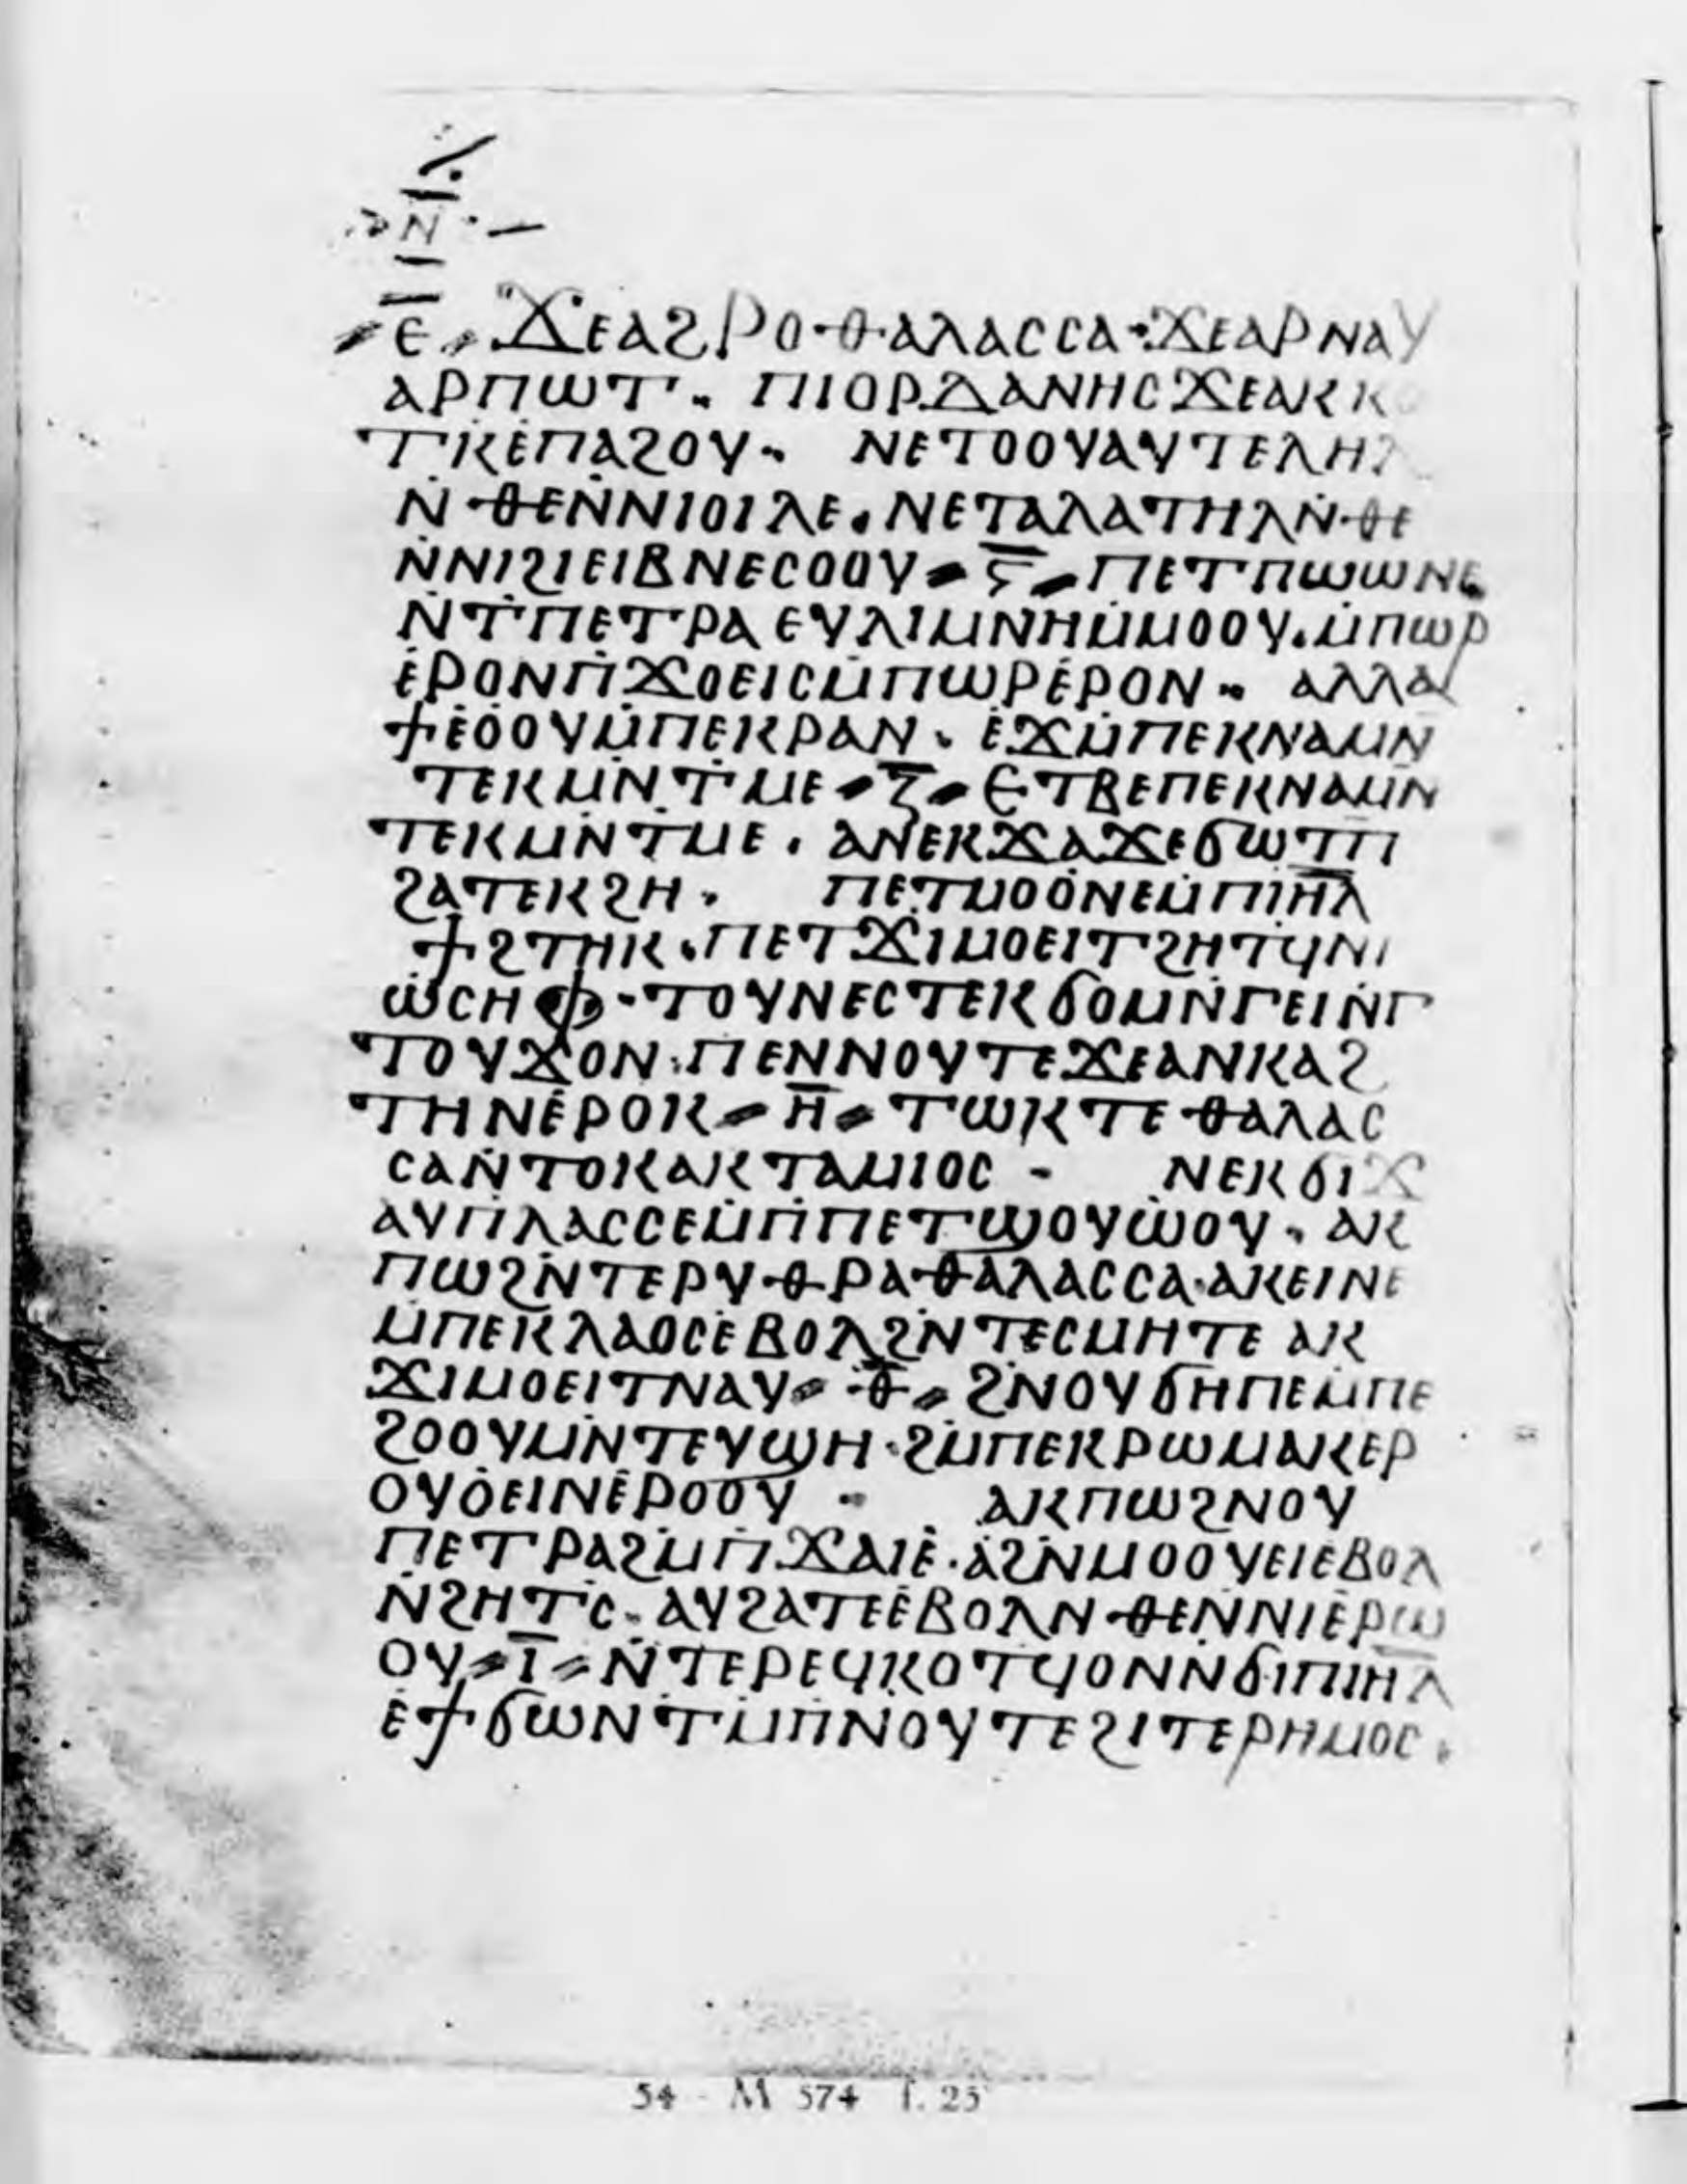 Ⲛ
Ⲉ ϪⲈⲀϨⲢⲞ·ⲐⲀⲖⲀⲤⲤⲀ·ϪⲈⲀⲢⲚⲀⲨ
ⲀⲢⲠⲰⲦ· ⲠⲒⲞⲢⲆⲀⲚⲎⲤϪⲈⲀⲔⲔ
ⲦⲔⲈⲠⲀϨⲞⲨ· ⲚⲈⲦⲞⲞⲨⲀⲨⲦⲈⲖⲎⲖ
Ⲛ̇ⲐⲈⲚ̇ⲚⲒⲞⲒⲖⲈ·ⲚⲈⲦⲀⲖⲀⲦⲎⲖⲚ̇ⲐⲈ
Ⲛ̇ⲚⲒϨⲒⲈⲒⲂⲚⲈⲤⲞⲞⲨ Ⲋ̅ ⲠⲈⲦⲠⲰⲰⲚⲈ
Ⲛ̇ⲦⲠⲈⲦⲢⲀⲈⲨⲖⲒⲘⲚⲎⲘ̇ⲘⲞⲞⲨ·Ⲙ̇ⲠⲰⲢ
Ⲉ̇ⲢⲞⲚⲠ̇ϪⲞⲈⲒⲤⲘ̇ⲠⲰⲢⲈ̇ⲢⲞⲚ· ⲀⲖⲖⲀ
ϯⲈ̇ⲞⲞⲨⲘ̇ⲠⲈⲔⲢⲀⲚ· Ⲉ̇ϪⲘ̇ⲠⲈⲔⲚⲀⲘⲚ
ⲦⲈⲔⲘⲚ̇ⲦⲘⲈ Ⲍ̅ ⲈⲦⲂⲈⲠⲈⲔⲚⲀⲘⲚ
ⲦⲈⲔⲘⲚ̇ⲦⲘⲈ· ⲀⲚⲈⲔϪⲀϪⲈϬⲰⲦⲠ
ϨⲀⲦⲈⲔϨⲎ· ⲠⲈⲦⲘⲞⲞⲚⲈⲘ̇ⲠⲒⲎ̅Ⲗ̅
ϯϨⲦⲎⲔ·ⲠⲈⲦϪⲒⲘⲞⲈⲒⲦϨⲎⲦϤⲚⲒ
ⲰⲤⲎⲪ·ⲦⲞⲨⲚⲈⲤⲦⲈⲔϬⲞⲘⲚ̇ⲄⲈⲒⲚ̇Ⲅ
ⲦⲞⲨϪⲞⲚ·ⲠⲈⲚⲚⲞⲨⲦⲈϪⲈⲀⲚⲔⲀϨ
ⲦⲎⲚⲈ̇ⲢⲞⲔ Ⲏ̅ ⲦⲰⲔⲦⲈⲐⲀⲖⲀⲤ
ⲤⲀⲚ̇ⲦⲞⲔⲀⲔⲦⲀⲘⲒⲞⲤ· ⲚⲈⲔϬⲒϪ
ⲀⲨⲠⲖⲀⲤⲤⲈⲘ̇Ⲡ̇ⲠⲈⲦϢⲞⲨⲰⲞⲨ· ⲀⲔ
ⲠⲰϨⲚ̇ⲦⲈⲢⲨⲐⲢⲀⲐⲀⲖⲀⲤⲤⲀ·ⲀⲔⲈⲒⲚⲈ
Ⲙ̇ⲠⲈⲔⲖⲀⲞⲤⲈ̇ⲂⲞⲖϨⲚ̇ⲦⲈⲤⲘⲎⲦⲈ ⲀⲔ
ϪⲒⲘⲞⲈⲒⲦⲚⲀⲨ Ⲑ̅ ϨⲚⲞⲨϬⲎⲠⲈⲘ̇ⲠⲈ
ϨⲞⲞⲨⲘⲚ̇ⲦⲈⲨϢⲎ·ϨⲘ̇ⲠⲈⲔⲢⲰⲘⲀⲔⲈⲢ
ⲞⲨⲞ̇ⲈⲒⲚⲈ̇ⲢⲞⲞⲨ· ⲀⲔⲠⲰϨⲚⲞⲨ
ⲠⲈⲦⲢⲀϨⲘ̇Ⲡ̇ϪⲀⲒⲈ̇·Ⲁ̇ϨⲚ̇ⲘⲞⲞⲨⲈⲒⲈⲂⲞⲖ
Ⲛ̇ϨⲎⲦⲤ̇·ⲀⲨϨⲀⲦⲈⲈ̇ⲂⲞⲖⲚ̇ⲐⲈⲚ̇ⲚⲒⲈ̇ⲢⲰ
ⲞⲨ Ⲓ̅ Ⲛ̇ⲦⲈⲢⲈϤⲔⲞⲦϤⲞⲚⲚ̇ϬⲒⲠⲒⲎ̅Ⲗ̅
Ⲉ̇ϯϬⲰⲚⲦⲘ̇Ⲡ̇ⲚⲞⲨⲦⲈϨⲒⲦⲈⲢⲎⲘⲞⲤ·
54 - M 574 f. 25